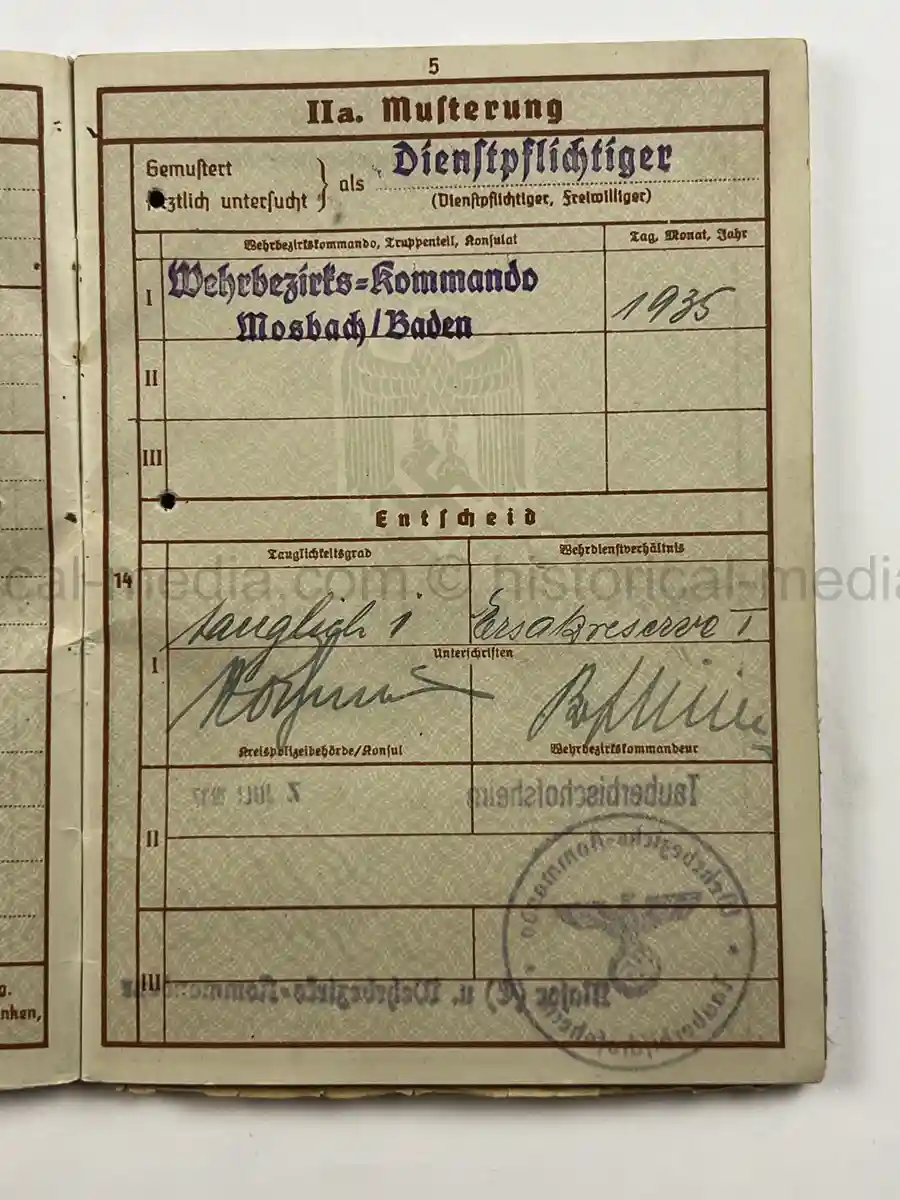 5
IIa. Musterung
Gemustert
ärztlich untersucht } als Dienstpflichtiger
(Dienstpflichtiger, Freiwilliger)
Wehrbezirkskommando, Truppenteil, Konsulat
Tag, Monat, Jahr
I Wehrbezirks=Kommando
Mosbach/Baden
1935
II
III
Entscheid
Tauglichkeitsgrad
Wehrdienstverhältnis
14
cal-media.com © historical-media
I tauglich i
Ersatzreserve I
Unterschriften
Kreispolizeibehörde/Konsul
Wehrbezirkskommandeur
Tauberbischofsheim
II
Wehrbezirks-Kommando
Tauberbischofsheim
III
Major (E) u. Wehrbezirks-Kommandeur
g.
nken,